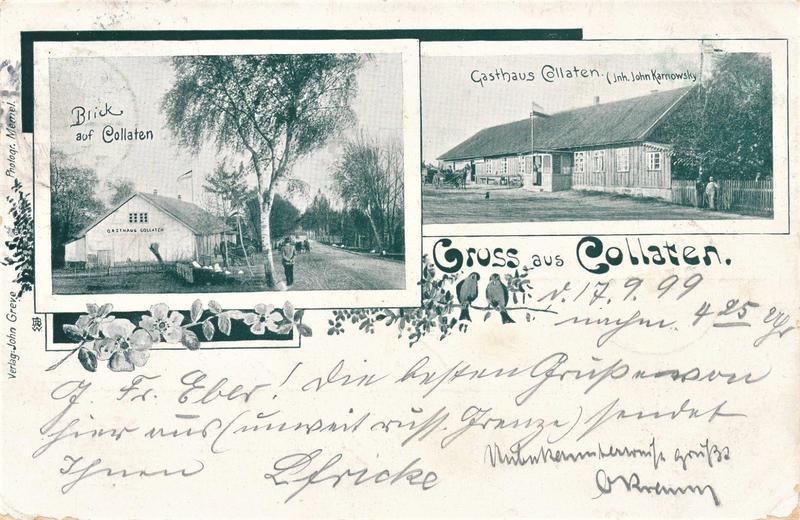 Blick
auf Collaten
GASTHAUS COLLATEN
Gasthaus Collaten. (Jnh. John Karnowsky
Gruss aus Collaten.
Verlag: John Greve, Photogr. Memel.
d. 17.9.99
nachm. 4 25 Uhr
G. Fr. Eber! Die besten Grüße von
hier aus (unweit russ. Grenze) sendet
Ihnen
Unbekannterweise grüßt